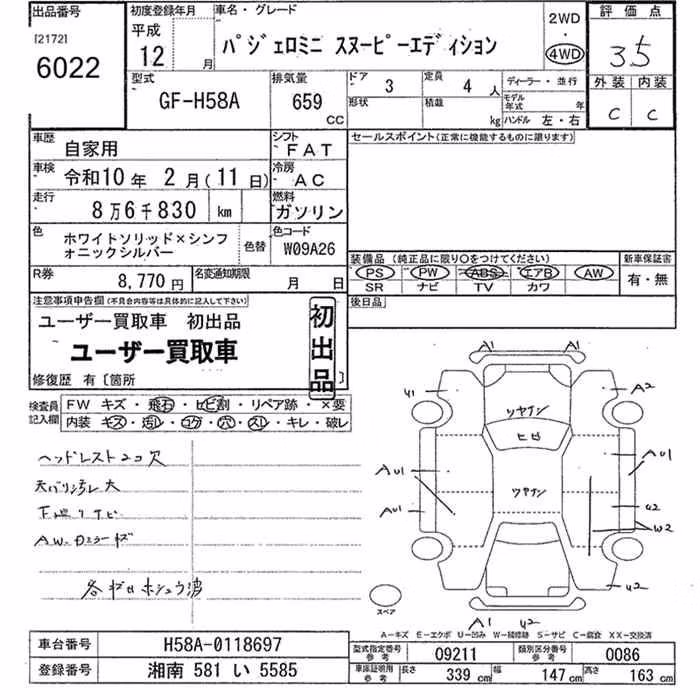 出品番号
[2172]
6022
初度登録年月
平成
12 月
車名・グレード
パジェロミニ スヌーピーエディション
2WD
・
4WD
評価点
3.5
型式
GF-H58A
排気量
659
CC
ドア
3
定員
4 人
形状
積載
kg
ディーラー・並行
モデル年式 年
ハンドル 左・右
外装 内装
C C
車歴
自家用
シフト
FAT
車検
令和10年 2月(11日)
冷房
AC
走行
8万6千830 km
燃料
ガソリン
色
ホワイトソリッド×シンフォニックシルバー
色替
色コード
W09A26
R券
8,770円
名変通知期限
月 日
セールスポイント(正常に機能するものに限ります)
装備品 (純正品に限り〇をつけてください)
PS PW ABS エアB AW
SR ナビ TV カワ
新車保証書
有・無
後日品
注意事項申告欄(不具合内容等は具体的に記入して下さい)
ユーザー買取車 初出品
ユーザー買取車
初出品
修復歴 有〔箇所 〕
検査員記入欄
FW キズ・飛石・ヒビ割・リペア跡・×要
内装 キズ・汚レ・コゲ・穴・スレ・キレ・破レ
ヘッドレスト2コ欠
天バリ汚レ大
下廻りサビ
各キズ ホシュウ済
A1 A1
U1 A2
ツヤナシ
ヒビ
AU1 AU1
ツヤナシ
AU1 U2
W2
U2
A1 U2
スペア
A-キズ E-エクボ U-凹み W-補修跡 S-サビ C-腐食 XX-交換済
車台番号 H58A-0118697
登録番号 湘南 581 い 5585
型式指定番号 参考 09211 類別区分番号 参考 0086
車庫証明用 参考 長さ 339 cm 幅 147 cm 高さ 163 cm